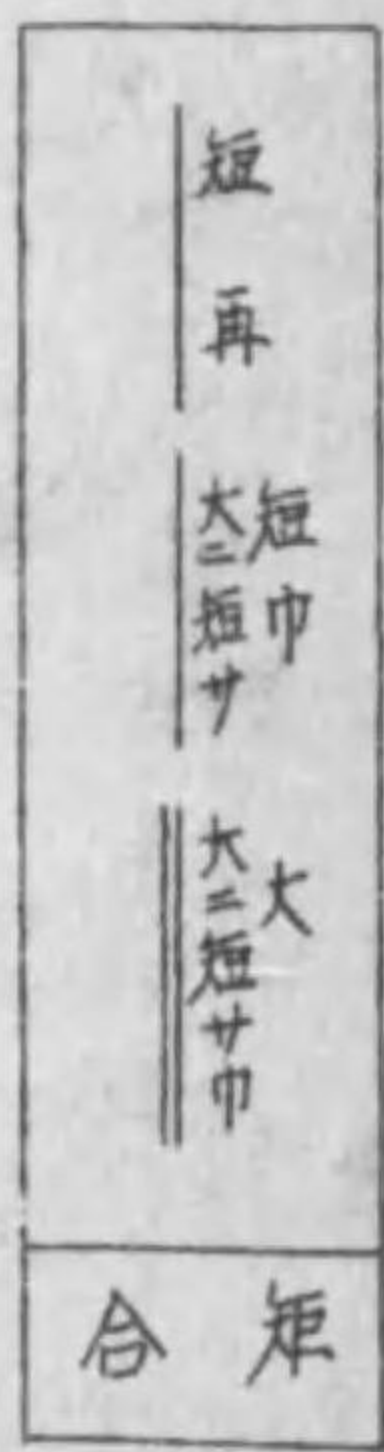 短再
短巾
大ニ短サ
大
大ニ短サ巾
矩合